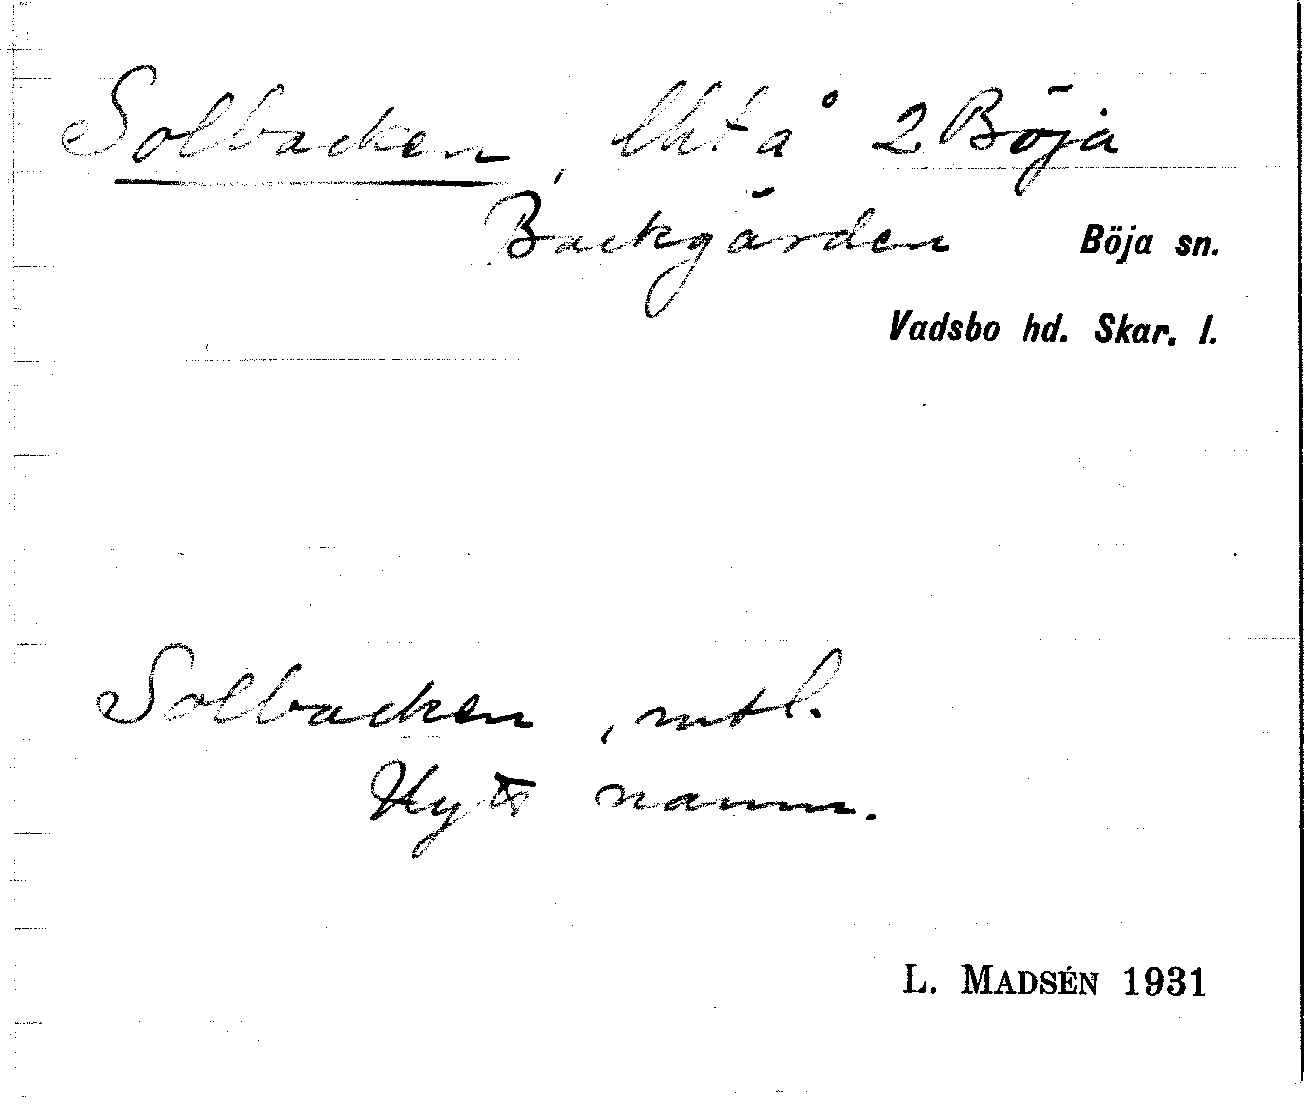 Solbacken, lht å 2 Böja
Backgården Böja sn.
Vadsbo hd. Skar. l.
Solbacken, mtl.
Nytt namn.
L. MADSÉN 1931